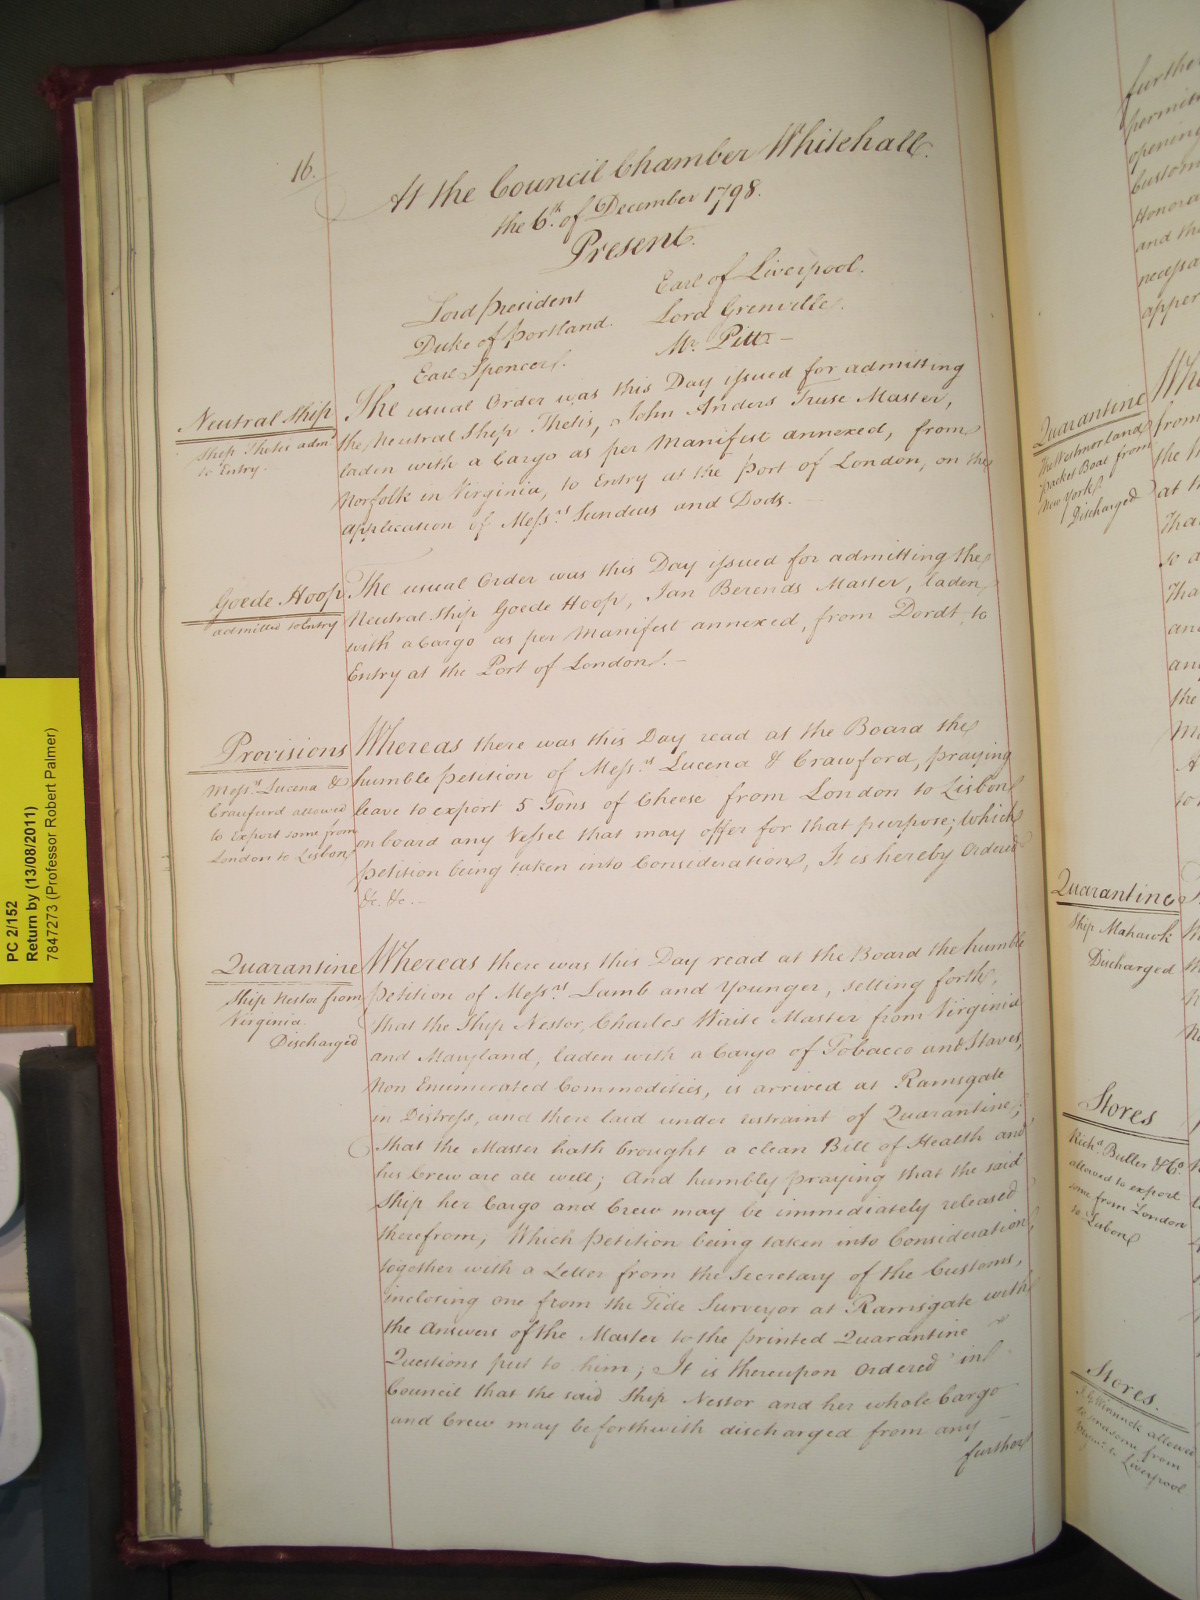 16.
At the Council Chamber Whitehall.
the 6th. of December 1798.
Present.
Lord President
Duke of Portland.
Earl Spencer.
Earl of Liverpool.
Lord Grenville.
Mr. Pitt. -
Neutral Ship
Ship Thetis admd
to Entry.
The usual Order was this Day issued for admitting
the Neutral Ship Thetis, John Anders Truse Master,
laden with a Cargo as per Manifest annexed, from
Norfolk in Virginia, to Entry at the Port of London, on the
application of Messrs and Dods.
Goede Hoop
admitted to Entry
The usual Order was this Day issued for admitting the
Neutral Ship Goede Hoop, Jan Berends Master, laden
with a Cargo as per Manifest annexed, from Dordt, to
Entry at the Port of London. -
Provisions
Messrs Lucena &
Craufurd allowed
to Export some from
London to Lisbon
Whereas there was this Day read at the Board the
humble petition of Messrs Lucena & Crawford, praying
leave to export 5 Tons of Cheese from London to Lisbon
on board any Vessel that may offer for that purpose; Which
petition being taken into Consideration, It is hereby Ordered
&c. &c. -
Quarantine
Ship Nestor from
Virginia.
Discharged
Whereas there was this Day read at the Board the humble
Petition of Messrs Lamb and Younger, setting forth,
that the Ship Nestor, Charles Waite Master from Virginia
and Maryland, laden with a Cargo of Tobacco and Staves,
Non Enumerated Commodities, is arrived at Ramsgate
in Distress, and there laid under restraint of Quarantine;
That the Master hath brought a clean Bill of Health and
his Crew are all well; And humbly praying that the said
Ship her Cargo and Crew may be immediately released
therefrom; Which petition being taken into Consideration,
together with a Letter from the Secretary of the Customs,
inclosing one from the Tide Surveyor at Ramsgate with
the Answers of the Master to the printed Quarantine
Questions put to him; It is thereupon Ordered in
Council that the said Ship Nestor and her whole Cargo
and Crew may be forthwith discharged from any
further
PC 2/152
Return by (13/08/2011)
7847273 (Professor Robert Palmer)
further
permit
opening
Custom
Honora
and the
necessa
apper
Quarantine
The Westmorland
packet Boat from
New York
Discharged
Whe
from
the
at
Tha
so a
Tha
and
any
the
Quarantine
Ship Mahawk
Discharged
Stores
Richd. Buller & Co.
allowed to export
some from London
to Lisbon
Stores.
allowed
to send some from
to Liverpool